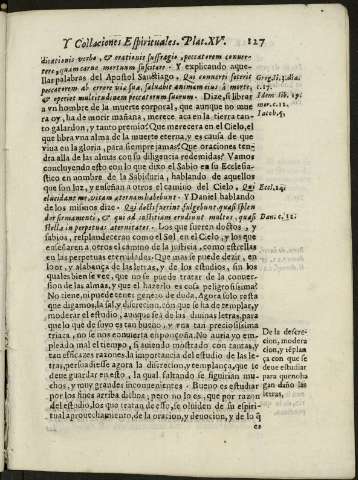 Y Collaciones Espirituales. Plat. XV. 127
dicationis verbo, & orationis suffragio, peccatorem conuer-
tere, quam carne mortuum suscitare. Y explicando aque-
llas palabras del Apostol Sanctiago, Qui conuerti fecerit
peccatorem ab errore via sua, saluabit animam eius à morte,
& operiet multitudinem peccatorum suorum. Dize, si librar
a vn hombre de la muerte corporal, que aunque no mue
ra oy, ha de morir mañana, merece aca en la tierra tan-
to galardon, y tanto premio? Que merecera en el Cielo, el
que libra vna alma de la muerte eterna, y es causa de que
viua en la gloria, para siempre jamas? Que oraciones ten-
dra alla de las almas con su diligencia redemidas? Vamos
concluyendo esto con lo que dixo el Sabio en su Ecclesia-
stico en nombre de la Sabiduria, hablando de aquellos
que son luz, y enseñan a otros el camino del Cielo, Qui
elucidant me, vitam aternam habebunt. Y Daniel hablando
de los mismos dize. Qui docti fuerint fulgebunt, quasi splen
dor firmamenti, & qui ad iustitiam erudiunt multos, quasi
stella in perpetuas aternitates. Los que fueren doctos, y
sabios, resplandeceran como el Sol en el Cielo, y los que
enseñaren a otros el camino de la justicia, como estrellas
en las perpetuas eternidades. Que mas se puede dezir, en
loor, y alabança de las letras, y de los estudios, sin los
quales bien se vee, que no se puede tratar de la conuer-
sion de las almas, y que el hazerlo es cosa peligrosissima?
No tiene, ni puede tener genero de duda. Agora solo resta
que digamos, la sal y discrecion, con que se ha de templar, y
moderar el estudio, aunque sea de las diuinas letras, para
que lo que de suyo es tan bueno, y vna tan preciosissima
triaca, no se nos conuierta en ponçoña. No auria yo em-
pleado mal el tiempo, si auiendo mostrado con tantas, y
tan efficazes razones la importancia del estudio de las le-
tras, persuadiesse agora la discrecion, y templança, que se
deue guardar en esto, la qual faltando se siguirian mu-
chos, y muy grandes inconuenientes. Bueno es estudiar
por los fines arriba dichos, pero no lo es, que por razon
del estudio, los que tratan desso, se oluiden de su espiri-
tual aprouechamiento, de la oracion, y deuocion, y de lo q̃
es
Greg. li. 3. dia.
c. 17.
Idem lib. 19.
mor. c. 12.
Iacob. 5.
Eccl. 24.
Dan. c. 12.
De la descre-
cion, modera
cion, y tẽplan
ça con que se
deue estudiar
para que no ha
gan daño las
letras.